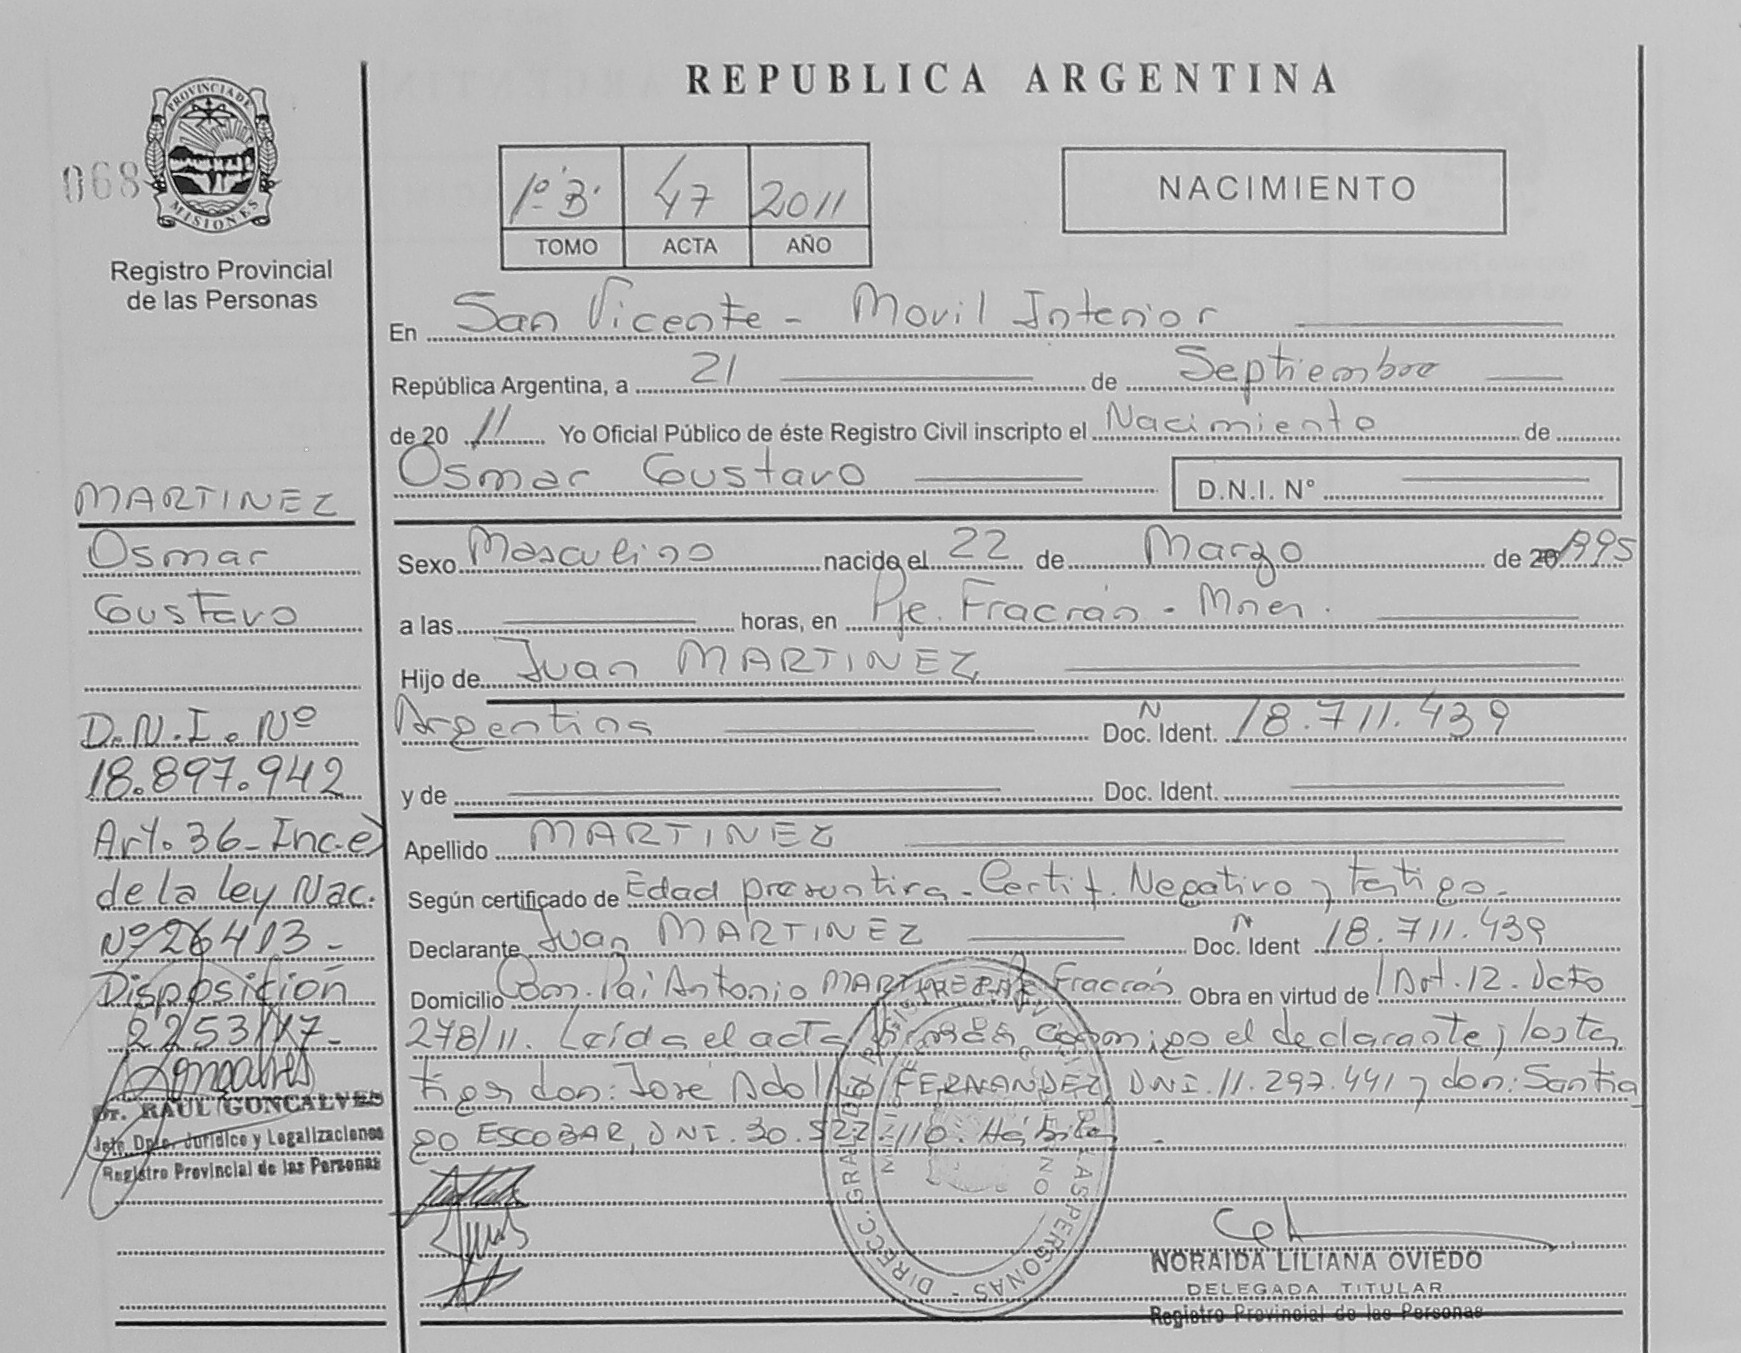 REPUBLICA ARGENTINA
PROVINCIA DE
MISIONES
068
Registro Provincial
de las Personas
1º B. 47 2011
TOMO ACTA AÑO
NACIMIENTO
En San Vicente - Movil Interior
República Argentina, a 21 de Septiembre
de 20 11 Yo Oficial Público de éste Registro Civil inscripto el Nacimiento de
Osmar Gustavo D.N.I. Nº
Sexo Masculino nacido el 22 de Marzo de 20 1995
a las horas, en Pje. Fracrán - Mnes.
Hijo de Juan MARTINEZ
Argentina Doc. N Ident. 18.711.439
y de Doc. Ident.
Apellido MARTINEZ
Según certificado de Edad presuntiva - Certif. Negativo y testigo -
Declarante Juan MARTINEZ Doc. N Ident 18.711.439
Domicilio Com. Pai Antonio MARTINEZ Pje Fracrán Obra en virtud de Art. 12. Dcto
278/11. Leída el acta firman conmigo el declarante y los tes
tigos don: José Adolfo FERNANDEZ, DNI. 11.297.441 y don: Santia
go ESCOBAR, DNI. 30.522.110. Hábiles -
MARTINEZ
Osmar
Gustavo
D.N.I. Nº
18.897.942
Art. 36 - Inc. e)
de la ley Nac.
Nº 26413 -
Disposición
2253/17 -
Goncalves
Dr. RAUL GONCALVES
Jefe Dpto. Jurídico y Legalizaciones
Registro Provincial de las Personas
DIRECC. GRAL. DE LAS PERSONAS
NORAIDA LILIANA OVIEDO
DELEGADA TITULAR
Registro Provincial de las Personas